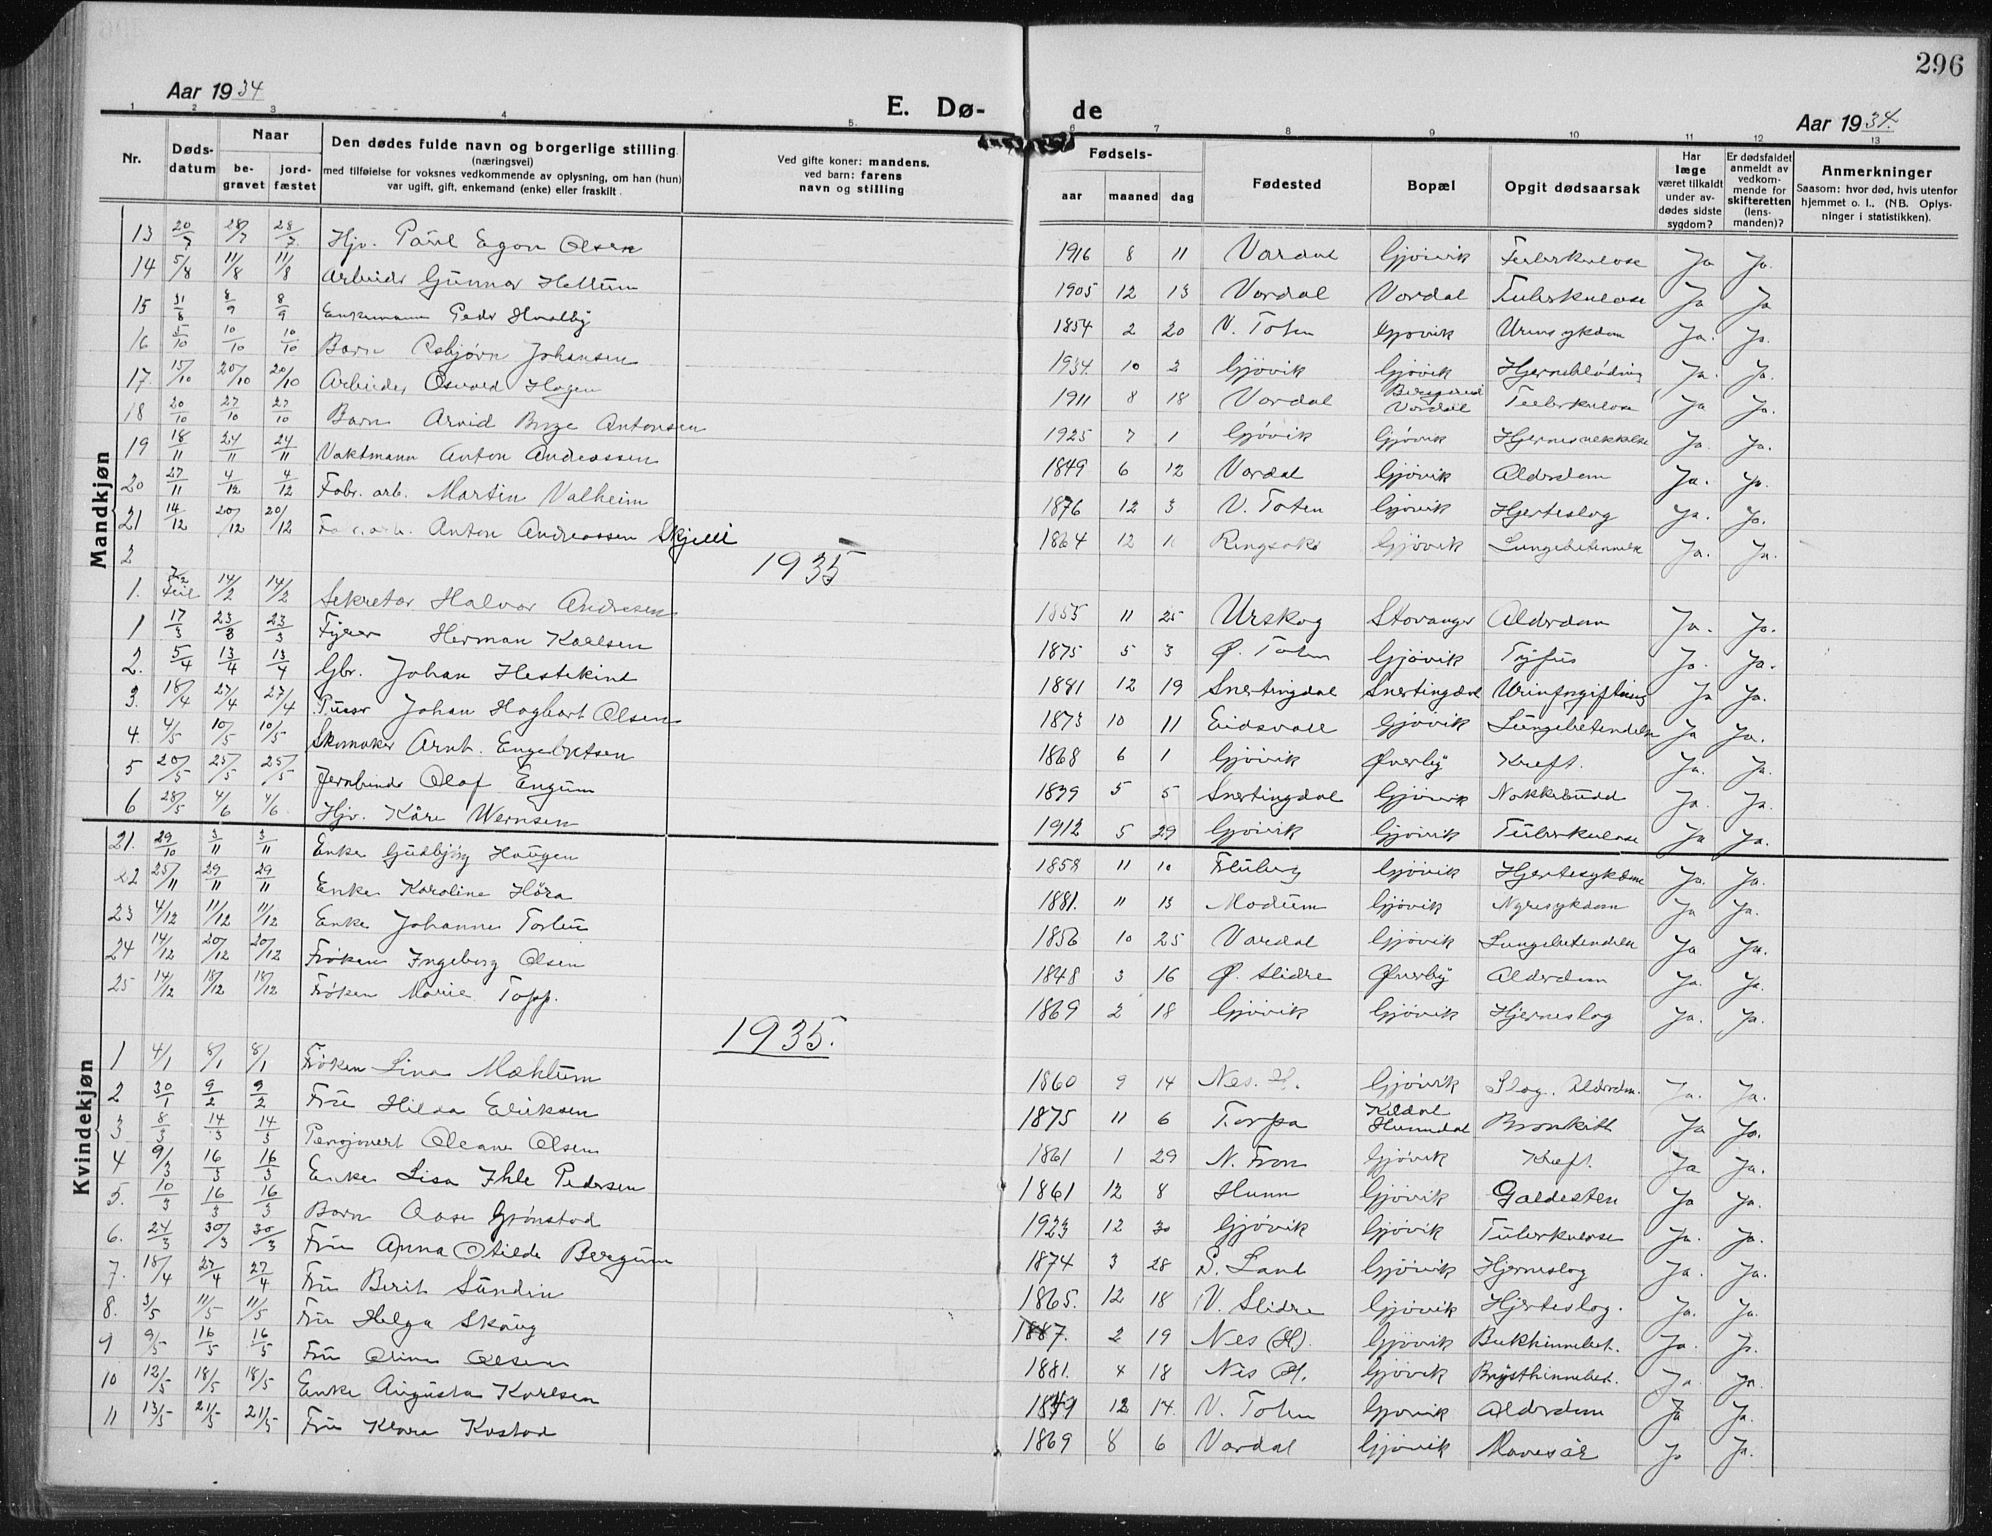 296
Aar 1934
E. Dø-
de
Aar 1934.
1 2 3 4 5. 6 7 8 9 10 11 12 13
Nr.
Døds-
datum
Naar
be-
gravet
jord-
fæstet
Den dødes fulde navn og borgerlige stilling
(næringsvei)
med tilføielse for voksnes vedkommende av oplysning, om han (hun)
var ugift, gift, enkemand (enke) eller fraskilt.
Ved gifte koner: mandens,
ved barn: farens
navn og stilling
Fødsels-
aar maaned dag
Fødested
Bopæl
Opgit dødsaarsak
Har
læge
været tilkaldt
under av-
dødes sidste
sygdom?
Er dødsfaldet
anmeldt av
vedkom-
mende for
skifteretten
(lens-
manden)?
Anmerkninger
Saasom: hvor død, hvis utenfor
hjemmet o. l., (NB. Oplys-
ninger i statistikken).
Mandkjøn
13 20/7 28/7 28/7 Hjv. Paul Egon Olsen 1916 8 11 Vardal Gjøvik Tuberkulose Ja Ja.
14 5/8 11/8 11/8 Arbeider Gunnar Hellum 1905 12 13 Vardal Vardal Tuberkulose Ja Ja
15 31/8 8/9 8/9 Enkemann Peder Hvalby 1854 2 20 V. Toten Gjøvik Urinsykdom Ja. Ja.
16 5/10 10/10 10/10 Barn Asbjørn Johansen 1934 10 2 Gjøvik Gjøvik Hjerneblødning Ja. Ja.
17. 15/10 20/10 20/10 Arbeider Osvald Hagen 1911 8 18 Vardal Vardal Tuberkulose Ja Ja.
18 20/10 27/10 27/10 Barn Arvid Antonsen 1925 7 1 Gjøvik Gjøvik Ja. Ja.
19 18/11 24/11 24/11 Vaktmann Anton Andreassen 1849 6 12 Vardal Gjøvik Alderdom Ja. Ja.
20 27/11 4/12 4/12 Fabr. arb. Martin Valheim 1876 12 3 V. Toten Gjøvik Hjerteslag Ja. Ja.
21 14/12 20/12 20/12 Anton Andreassen Skjelli 1864 12 Ringsaker Gjøvik Lungebetennelse Ja. Ja.
2
1935
1. Feil 14/2 14/2 Sekretær Halvor Andresen 1855 11 25 Urskog Stavanger Alderdom Ja. Ja.
1 17/3 23/3 23/3 Fyrer Herman Karlsen 1875 5 3 Ø. Toten Gjøvik Tyfus Ja. Ja.
2. 5/4 13/4 13/4 Gbr. Johan Hestekind 1881 12 19 Snertingdal Snertingdal Urinforgiftning Ja Ja.
3. 18/4 27/4 27/4 Pusser Johan Hagbart Olsen 1873 10 11 Eidsvoll Gjøvik Lungebetendelse Ja Ja.
4. 4/5 10/5 10/5 Skomaker Arnt. Engebretsen 1868 6 1 Gjøvik Øverby Kreft. Ja. Ja.
5 20/5 25/5 25/5 Jernbinder Olaf Engum 1899 5 5 Snertingdal Gjøvik Nakkebrudd Ja. Ja.
6 28/5 4/6 4/6 Hjv. Kåre Wernsen 1912 5 29 Gjøvik Gjøvik Tuberkulose Ja Ja.
Kvindekjøn
21. 29/10 3/11 3/11 Enke Gudbjørg Haugen 1858 11 10 Fluberg Gjøvik Hjertesykdom Ja. Ja.
22 25/11 29/11 29/11 Enke Karoline Høra 1881. 11 13 Modum Gjøvik Nyresykdom Ja Ja.
23 4/12 11/12 11/12 Enke Johanne 1856 10 25 Vardal Gjøvik Lungebetendelse Ja Ja.
24 14/12 20/12 20/12 Frøken Ingeborg Olsen 1848 3 16 Ø. Slidre Øverby Alderdom Ja. Ja.
25 14/12 18/12 18/12 Frøken Marie Topp. 1869 2 18 Gjøvik Gjøvik Hjerneslag Ja. Ja.
1935.
1 4/1 8/1 8/1 Frøken Lina Mæhlum 1860 9 14 Nes. H. Gjøvik Slag. Alderdom. Ja. Ja.
2 30/1 9/2 9/2 Fru Hilda Eriksen 1875 11 6 Torpa Kildal Hunndal Bronkitt Ja Ja.
3 8/3 14/3 14/3 Pensjonert Oleane Olsen 1861 1 29 N. Fron Gjøvik Kreft. Ja Ja.
4 9/3 16/3 16/3 Enke Lisa Ihle Pedersen 1861 12 8 Hunn Gjøvik Galdesten Ja Ja.
5. 10/3 16/3 16/3 Barn Aase Grønstad 1923 12 30 Gjøvik Gjøvik Tuberkulose Ja. Ja.
6. 24/3 30/3 30/3 Fru Anna Otilde Bergum 1874 3 28 S. Land Gjøvik Hjerneslag Ja. Ja.
7. 18/4 27/4 27/4 Fru Berit Sundin 1865. 12 18 V. Slidre Gjøvik Hjerteslag. Ja. Ja.
8. 3/5 11/5 11/5 Fru Helga Skaug 1887. 2 19 Nes (H). Gjøvik Bukhinnebet. Ja. Ja.
9 9/5 16/5 16/5 Fru Oline Olsen 1881. 4 18 Nes H. Gjøvik Brysthinnebet. Ja. Ja.
10 12/5 18/5 18/5 Enke Augusta Karlsen 12 14. V. Toten Gjøvik Alderdom Ja Ja.
11 13/5 21/5 21/5 Fru Klara Kvstad 1869 8 6 Vardal Gjøvik Mavesår Ja Ja.